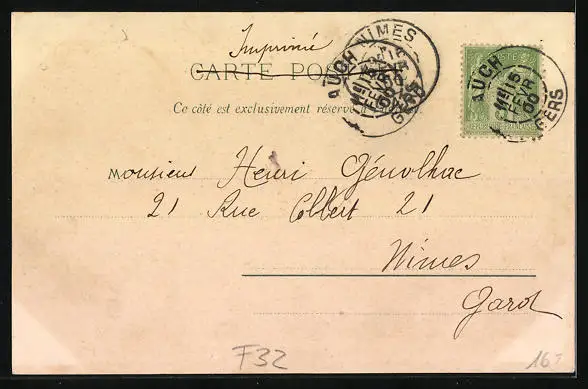 Imprimé
CARTE POS
Ce côté est exclusivement réservé à
NIMES
AUCH
15
FEVR
00
GERS
AUCH
15
FEVR
00
GERS
Monsieur Henri Génolhac
21 Rue Colbert 21
Nimes
Gard
F32
16